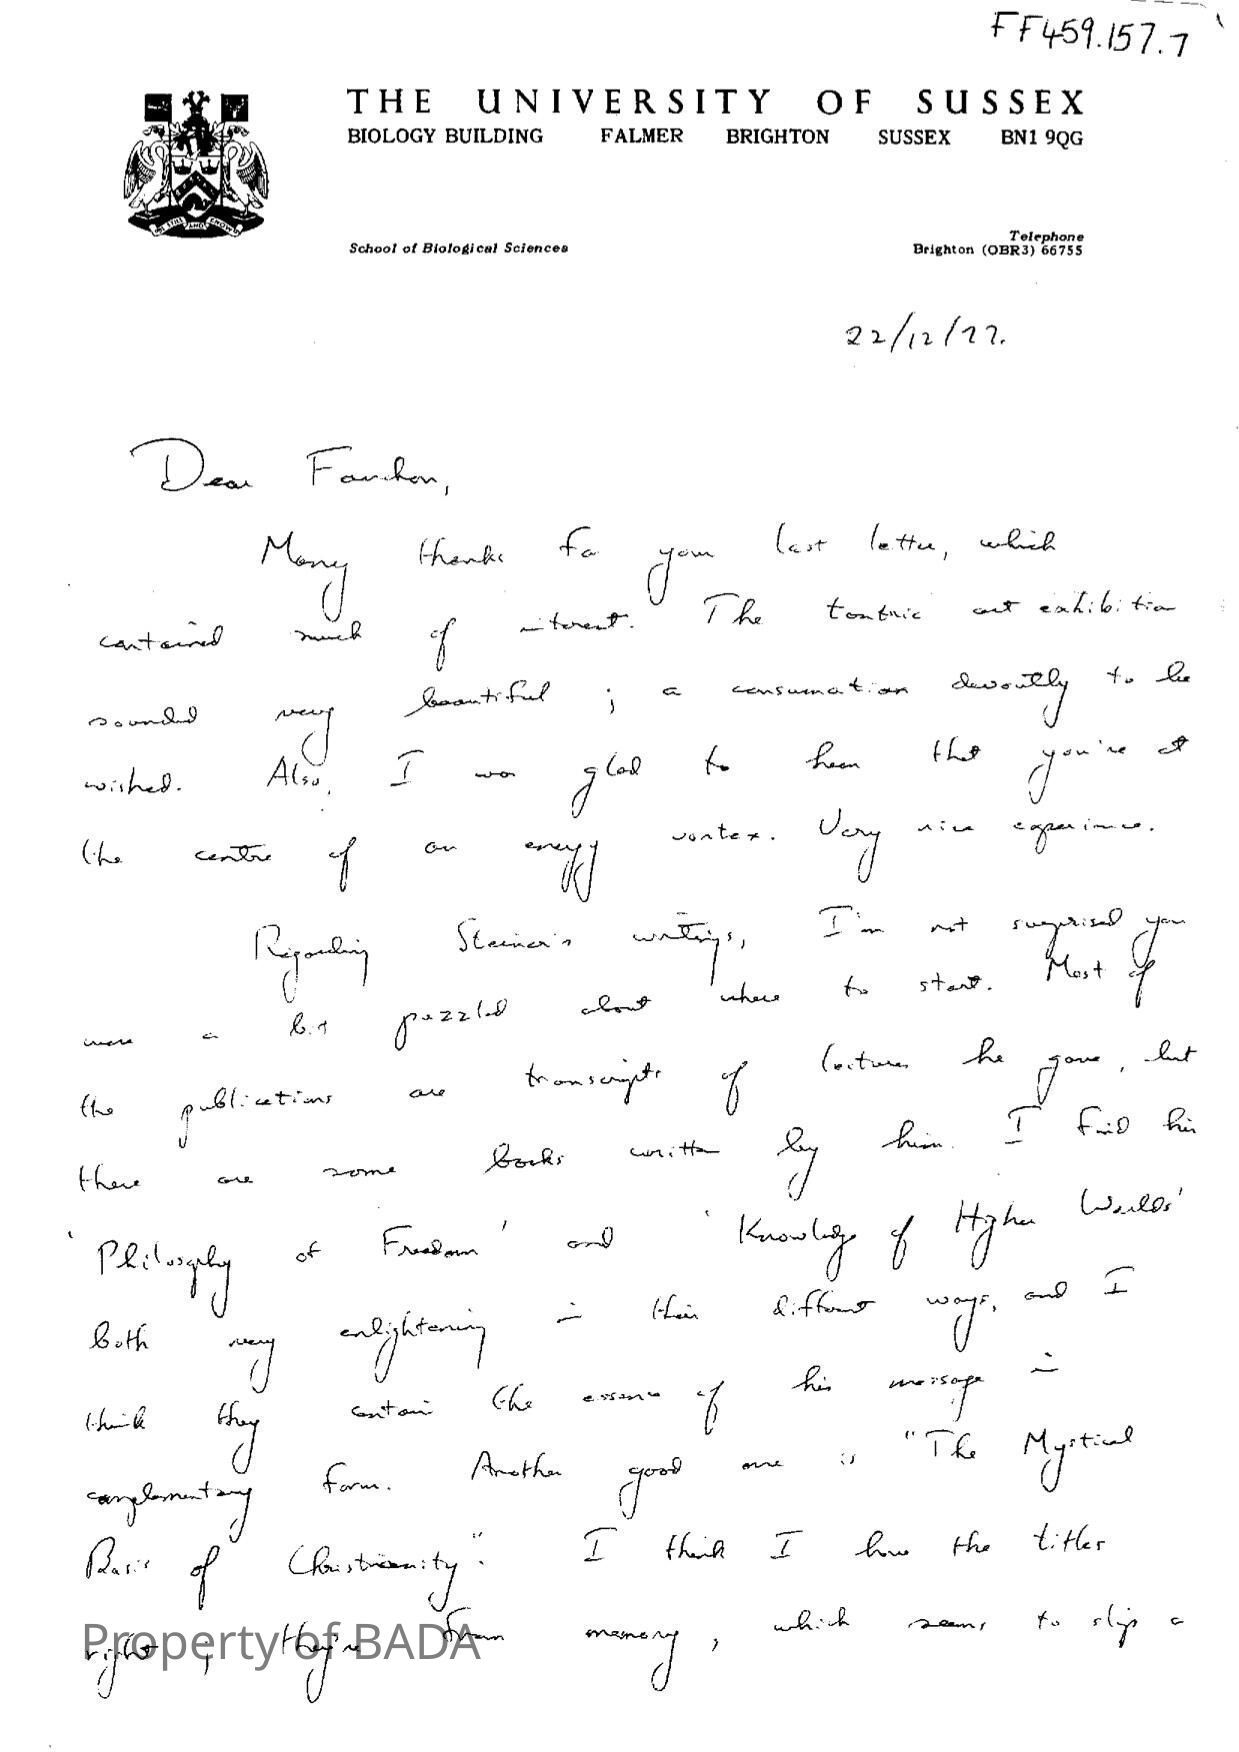 FF459.157.7
THE UNIVERSITY OF SUSSEX
BIOLOGY BUILDING FALMER BRIGHTON SUSSEX BN1 9QG
BE STILL AND KNOW
School of Biological Sciences
Telephone
Brighton (OBR3) 66755
22/12/77.
Dear Fanchon,
Many thanks for your last letter, which
contained much of interest. The tantric art exhibition
sounded very beautiful; a consumation devoutly to be
wished. Also, I was glad to hear that you're at
the centre of an energy vortex. Very nice experience.
Regarding Steiner's writings, I'm not surprised you
were a bit puzzled about where to start. Most of
the publications are transcripts of lectures he gave, but
there are some books written by him. I find his
'Philosophy of Freedom' and 'Knowledge of Higher Worlds'
both very enlightening in their different ways, and I
think they contain the essence of his message in
complementary form. Another good one is "The Mystical
Basis of Christianity". I think I have the titles
right; they're from memory, which seems to slip a
Property of BADA